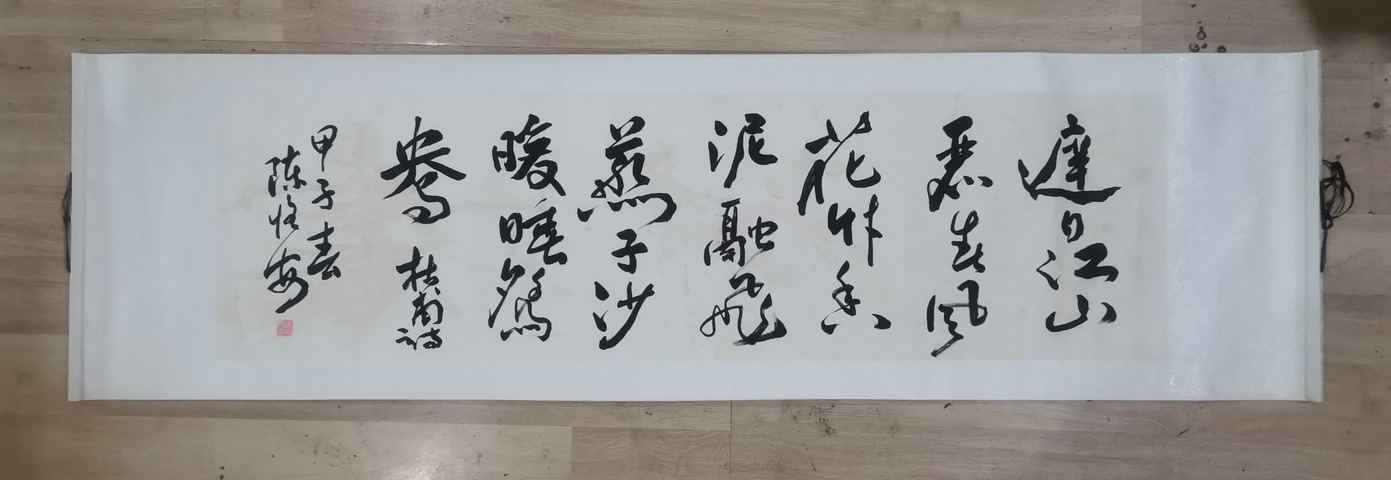 遲日江山
麗春風
花艸香
泥融飛
燕子沙
暖睡鴛
鴦 杜甫詩
甲子春
陳恒安